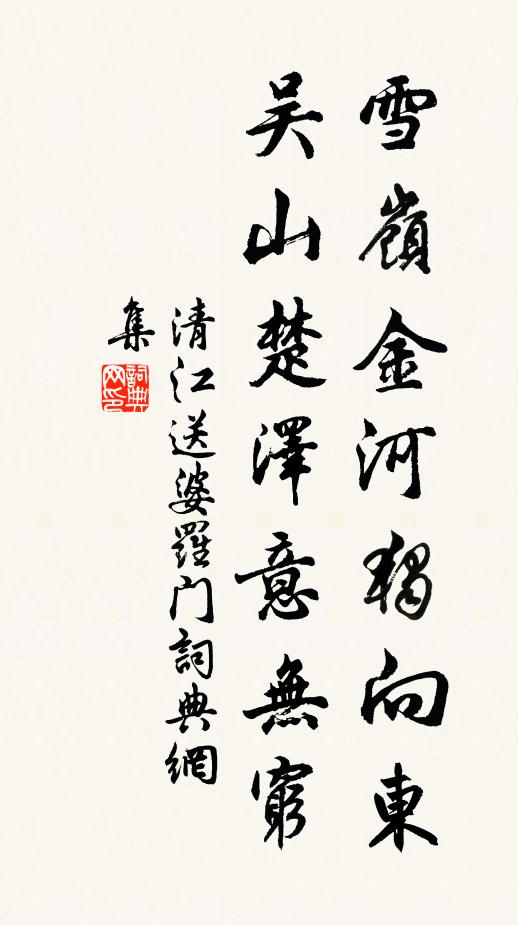 雪嶺金河獨向東
吳山楚澤意無窮
清江送婆羅門詞典網
集
詞典
网印